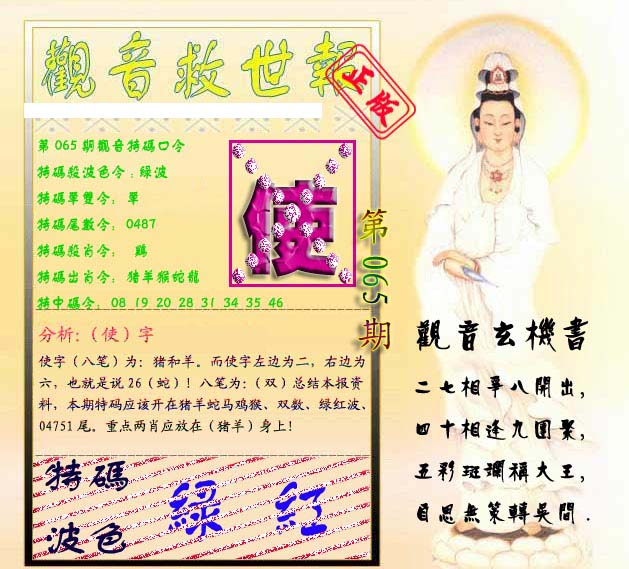 觀音救世報
正版
第065期觀音特碼口令
特碼殺波色令:綠波
特碼單雙令: 單
特碼尾數令: 0487
特碼殺肖令: 鷄
特碼出肖令: 猪羊猴蛇龍
特中碼令: 08 19 20 28 31 34 35 46
使
第065期
分析:(使)字
使字(八笔)为: 猪和羊。而使字左边为二, 右边为
六, 也就是说26(蛇)! 八笔为:(双)总结本报资
料, 本期特码应该开在猪羊蛇马鸡猴、双数、绿红波、
04751尾。重点两肖应放在(猪羊)身上!
特碼
波色
綠 紅
觀音玄機書
二七相爭八開出,
四十相逢九團聚,
五彩斑斕稱大王,
自思無策轉吳間.